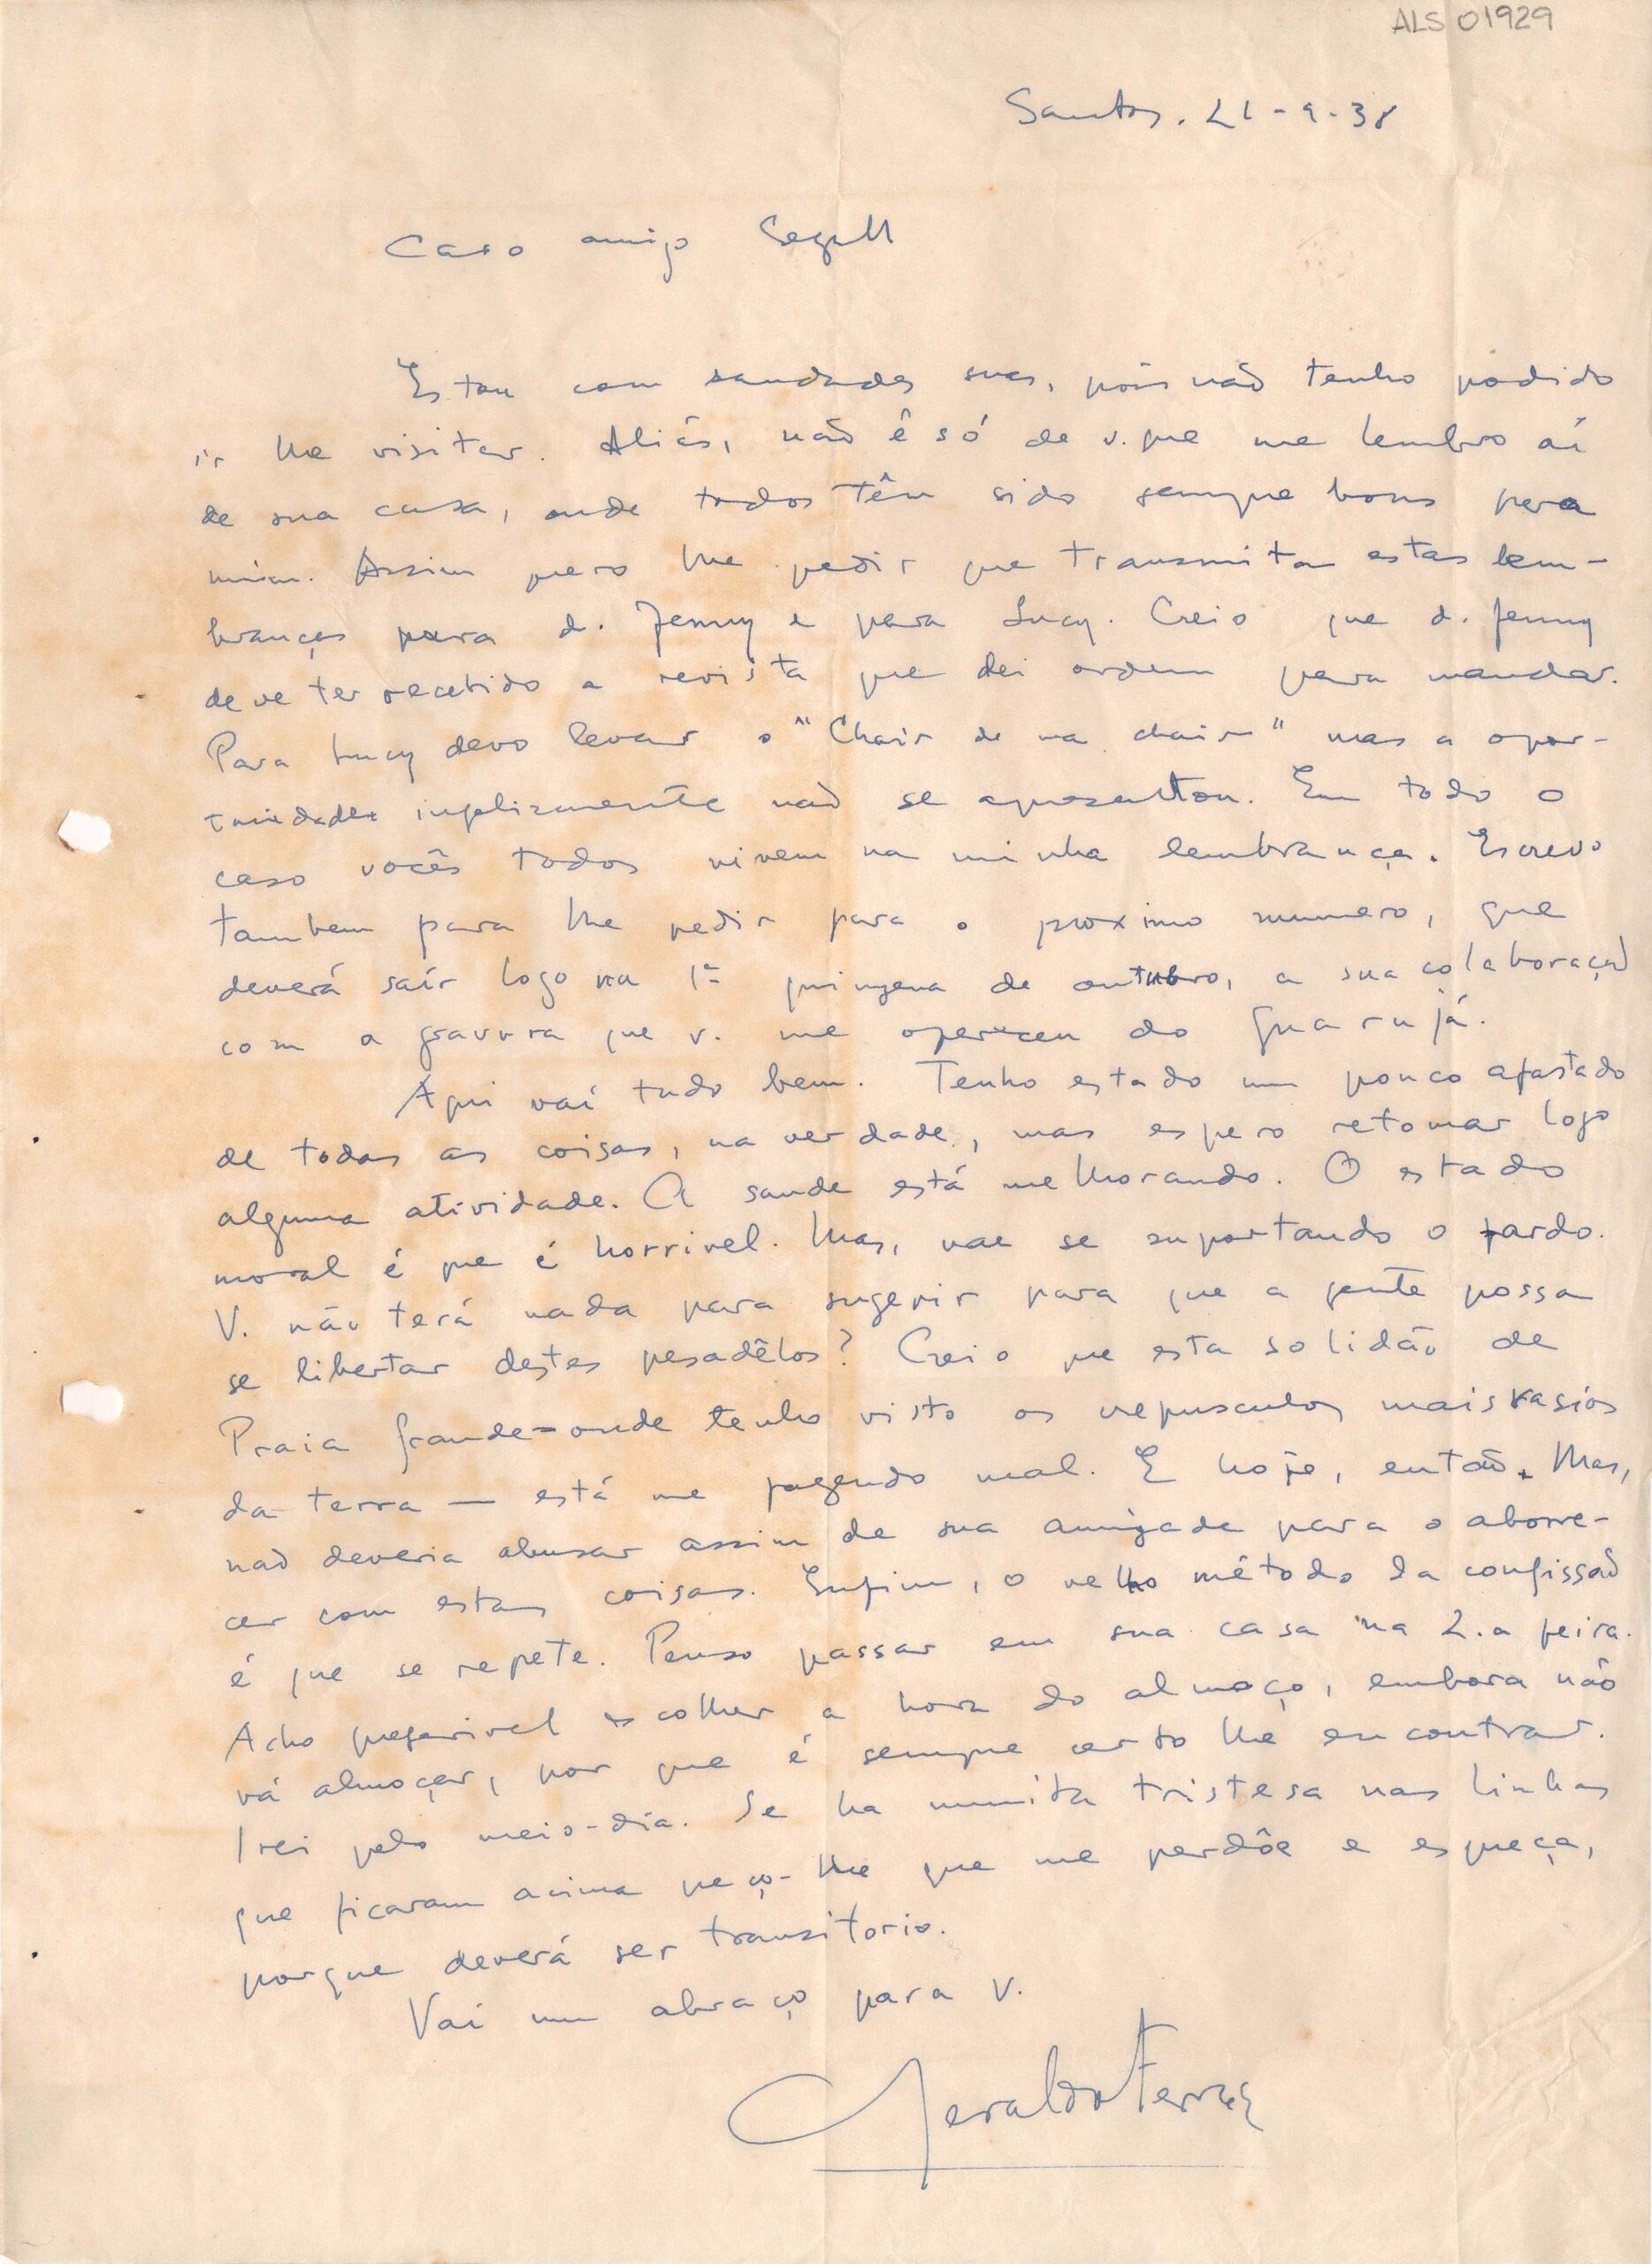 ALS 01929
Santos. 21-9-38
Caro amigo Segall
Estou com saudades suas, pois não tenho podido
ir lhe visitar. Aliás, não é só de v. que me lembro aí
de sua casa, onde todos têm sido sempre bons para
mim. Assim quero lhe pedir que transmita estas lem-
branças para d. Jenny e para Lucy. Creio que d. Jenny
deve ter recebido a revista que dei ordem para mandar.
Para Lucy devo levar o "Chair de ma chair" mas a opor-
tunidade infelizmente não se apresentou. Em todo o
caso vocês todos vivem na minha lembrança. Escrevo
tambem para lhe pedir para o proximo numero, que
deverá saír logo na 1ª quinzena de outubro, a sua colaboração
com a gravura que v. me ofereceu do Guarujá.
Aqui vai tudo bem. Tenho estado um pouco afastado
de todas as coisas, na verdade, mas espero retomar logo
alguma atividade. A saude está melhorando. O estado
moral é que é horrivel. Mas, vae se suportando o fardo.
V. não terá nada para sugerir para que a gente possa
se libertar destes pesadêlos? Creio que esta solidão de
Praia Grande - onde tenho visto os crepusculos mais vasios
da terra — está me fazendo mal. E hoje, então. Mas,
não deveria abusar assim de sua amizade para o aborre-
cer com estas coisas. Enfim, o velho método da confissão
é que se repete. Penso passar em sua casa na 2.a feira.
Acho preferivel escolher a hora do almoço, embora não
vá almoçar, por que é sempre certo lhe encontrar.
Irei pelo meio-dia. Se ha muita tristesa nas linhas
que ficaram acima peço-lhe que me perdôe e esqueça,
porque deverá ser transitorio.
Vai um abraço para v.
Geraldo Ferraz